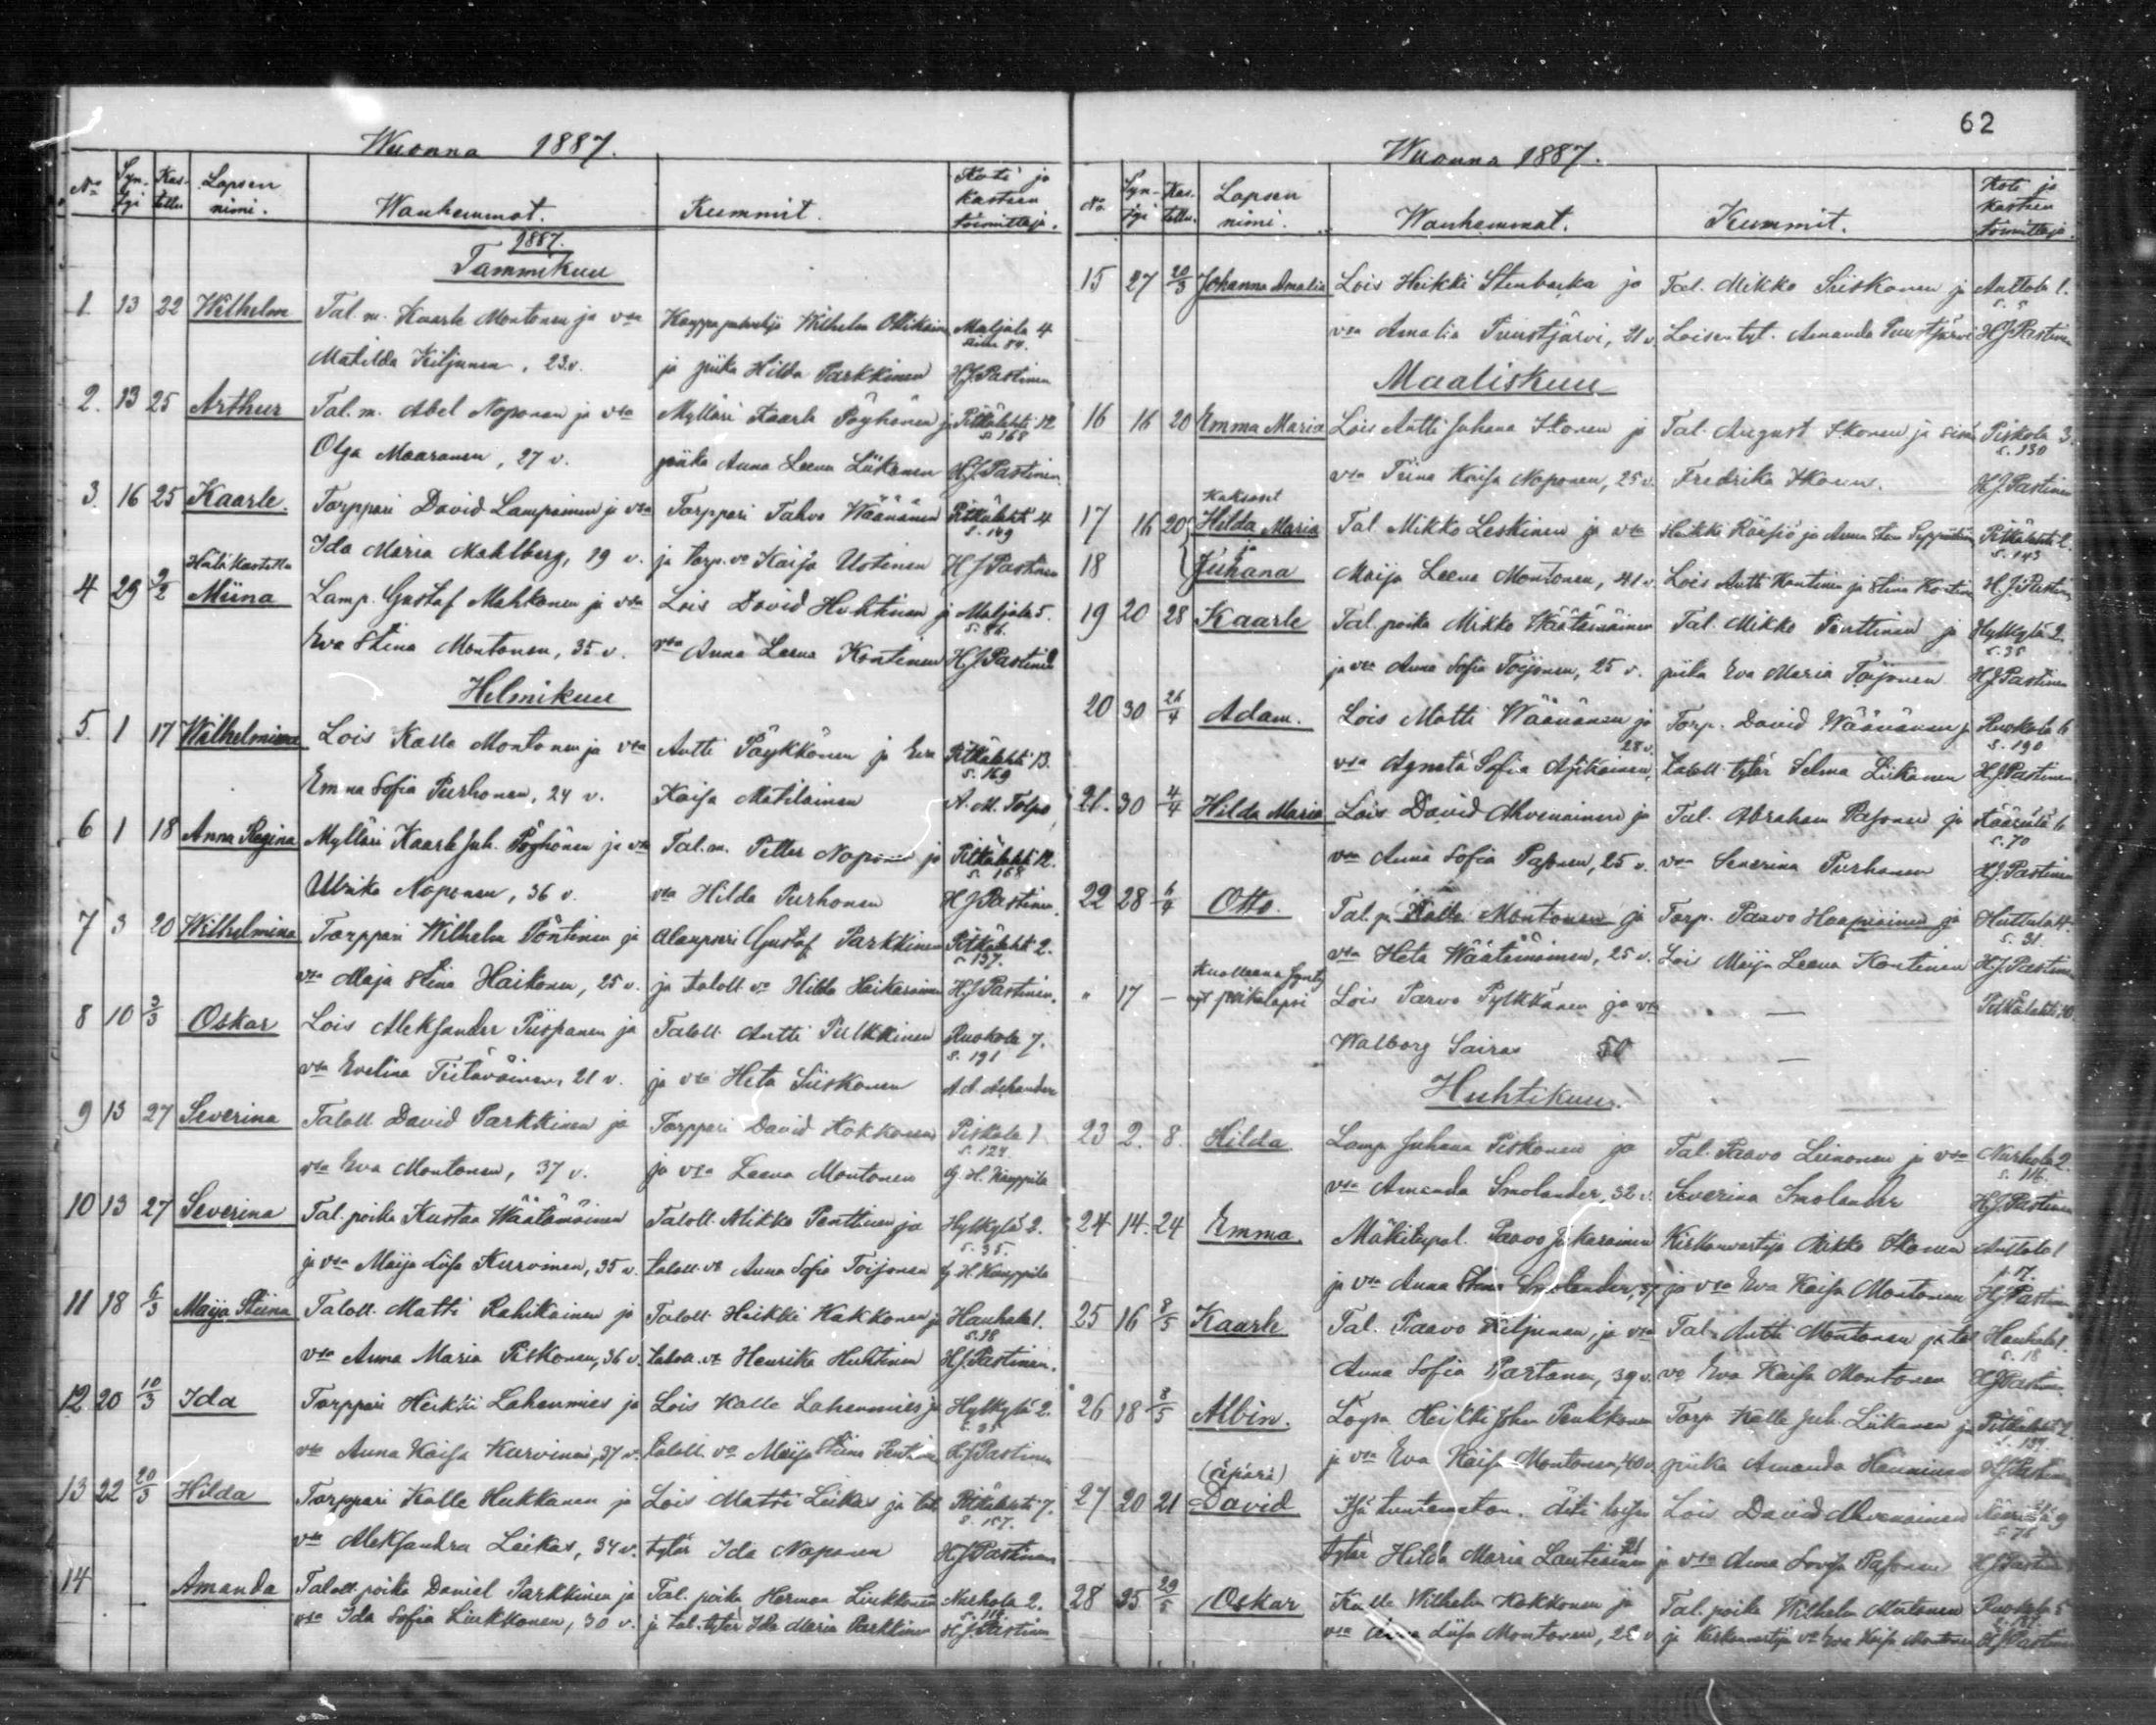 62
Wuonna 1887.
No Syn-tyi Kas-tettu Lapsen nimi. Wanhemmat. Kummit. Koti ja kasteen toimittaja.
1887.
Tammikuu
1. 13 22 Wilhelm Tal. m. Kaarle Montonen ja vsa Kauppapalvelija Wilhelm Ollikainen Maljala 4
Matilda Kiljunen, 23 v. ja piika Hilda Parkkinen H.J. Pastinen
2. 13 25 Arthur Tal. m. Abel Noponen ja vsa Mylläri Kaarle Pöyhönen ja Pitkälahti 12 s. 168
Olga Maaranen, 27 v. piika Anna Leena Liikanen H.J. Pastinen
3. 16 25 Kaarle. Torppari David Lampainen ja vsa Torppari Tahvo Wäänänen Pitkälahti 4
Ida Maria Mahlberg, 29 v. ja torp. vo Kaisa Ustinen H.J. Pastinen
Hätäkastettu
4 29 9/2 Miina Lamp. Gustaf Mahkonen ja vsa Lois David Huhtinen ja Maljala 5. s. 86.
Eva Stina Montonen, 35 v. vsa Anna Leena Kontinen H.J. Pastinen
Helmikuu
5. 1 17 Wilhelmina Lois Kalle Montonen ja vsa Antti Pöykkönen ja Eva Pitkälahti 13. s. 169
Emma Sofia Purhonen, 24 v. Kaisa Matilainen A. M. Tolpo
6 1 18 Anna Regina Mylläri Kaarle Juh. Pöyhönen ja vsa Tal. m. Petter Noponen ja Pitkälahti 12. s. 168
Ulrika Noponen, 36 v. vsa Hilda Purhonen H.J. Pastinen
7 3 20 Wilhelmina Torppari Wilhelm Pöntinen ja Alaupseri Gustaf Parkkinen Pitkälahti 2. s. 137.
vsa Maja Stina Haikonen, 25 v. ja taloll. vo Hilda Haikarainen H.J. Pastinen.
8 10 3/3 Oskar Lois Aleksander Piispanen ja Taloll. Antti Pulkkinen Ruokola 7. s. 191
vsa Evelina Tiitäväinen, 21 v. ja vsa Heta Siiskonen
9 13 27 Severina Taloll. David Parkkinen ja Torppari David Kokkonen Piskola 1
vsa Eva Montonen, 37 v. ja vsa Leena Montonen G. H. Kauppila
10 13 27 Severina Tal. poika Kustaa Wäätämöinen Taloll. Mikko Penttinen ja Hyltkylä 2. s. 35.
ja vsa Maija Liisa Kurvinen, 35 v. taloll. vo Anna Sofia Toijonen G. H. Kauppila
11 18 6/3 Maija Stiina Taloll. Matti Rahikainen ja Taloll. Heikki Kakkonen ja Hauhala 1. s. 18
vsa Anna Maria Piskonen, 36 v. taloll. vo Henrika Huhtinen H.J. Pastinen.
12 20 10/3 Ida Torppari Heikki Lahenmies ja Lois Kalle Lahenmies ja Hyltkylä 2. s. 35
vsa Anna Kaisa Kurvinen, 37 v. taloll. vo Maija Stiina H.J. Pastinen
13 22 20/3 Hilda Torppari Kalle Hukkanen ja Lois Matti Leikas ja tal. Pitkälahti 7. s. 157.
vsa Aleksandra Leikas, 34 v. tytär Ida Noponen H.J. Pastinen
14 – Amanda Taloll. poika Daniel Parkkinen ja Tal. poika Herman Liukkonen Nurhola 2. s. 116
vsa Ida Sofia Liukkonen, 30 v. ja tal. tytär Ida Maria Parkkinen H.J. Pastinen
Wuonna 1887.
No Syn-tyi Kas-tettu. Lapsen nimi. Wanhemmat. Kummit. Koti ja kasteen toimittaja.
15 27 20/3 Johanna Amalia Lois Heikki Stenbacka ja Tal. Mikko Siiskonen ja Anttola 1. s. 5
vsa Amalia Puustjärvi, 21 v. Loisen tyt. Amanda Puustjärvi H.J. Pastinen
Maaliskuu
16 16 20 Emma Maria Lois Antti Juhana Ikonen ja Tal. August Ikonen ja sisar Piskola 3. s. 130
vsa Stiina Kaisa Noponen, 25 v. Fredrika Ikonen. H.J. Pastinen
Kaksoset
17 16 20 Hilda Maria Tal. Mikko Leskinen ja vsa Heikki Räisiö ja Anna Pitkälahti 2. s. 143
ja
18 Juhana Maija Leena Montonen, 41 v. Lois Antti Kontinen ja Stina Kontinen H.J. Pastinen
19 20 28 Kaarle Tal. poika Mikko Wäätämöinen Tal. Mikko Penttinen ja Hyltkylä 2. s. 35
ja vsa Anna Sofia Toijonen, 25 v. piika Eva Maria Toijonen H.J. Pastinen
20 30 26/4 Adam. Lois Matti Wäänänen ja Torp. David Wäänänen ja Ruokola 6 s. 190
28 v.
vsa Agneta Sofia Ajikainen, taloll. tytär Selma Liikanen H.J. Pastinen
21. 30 4/4 Hilda Maria Lois David Ahvenainen ja Tal. Abraham Pasonen ja Kääriälä 6 s. 70
vsa Anna Sofia Pasonen, 25 v. vsa Severina Purhonen H.J. Pastinen
22 28 6/4 Otto. Tal. p. Kalle Montonen ja Torp. Paavo Haapiainen ja Huttula 4. s. 31.
vsa Heta Wäätämöinen, 25 v. Lois Maija Leena Kontinen H.J. Pastinen
Kuolleena synty-
" 17 – nyt poikalapsi Lois Paavo Pylkkänen ja vsa — Pitkälahti 10.
Walborg Sairas —
Huhtikuu.
23 2. 8. Hilda Lamp. Juhana Piskonen ja Tal. Paavo Leinonen ja vsa Nurhola 2. s. 116.
vsa Amanda Smolander, 32 v. Severina Smolander H.J. Pastinen
24 14. 24 Emma. Mäkitupal. Paavo Kirkonvartija Mikko Ikonen Anttola 1
ja vsa Anna Stina Smolander, 37 ja vsa Eva Kaisa Montonen H.J. Pastinen
25 16 8/5 Kaarle Tal. Paavo Kiljunen, ja vsa Tal. Antti Montonen ja tal. Hauhala 1. s. 18
Anna Sofia Partanen, 39 v. vo Eva Kaisa Montonen H.J. Pastinen
26 18 8/5 Albin. Heikki Johan Pentikkonen Torp. Kalle Juh. Liikanen ja Pitkälahti 2.
ja vsa Eva Kaisa Montonen, 40 v. piika Amanda Hänninen H.J. Pastinen
(äpärä)
27 20 21 David Isä tuntematon. Äiti loisen Lois David Ahvenainen
tytär Hilda Maria Lautiainen 21 ja vsa Anna Sofia Pasonen H.J. Pastinen
28 25 29/5 Oskar Kalle Wilhelm Kokkonen ja Tal. poika Wilhelm Mutonen Ruokola 5
vsa Liisa Montonen, 28 v. ja kirkonvartija vo Eva Kaisa Montonen H.J. Pastinen